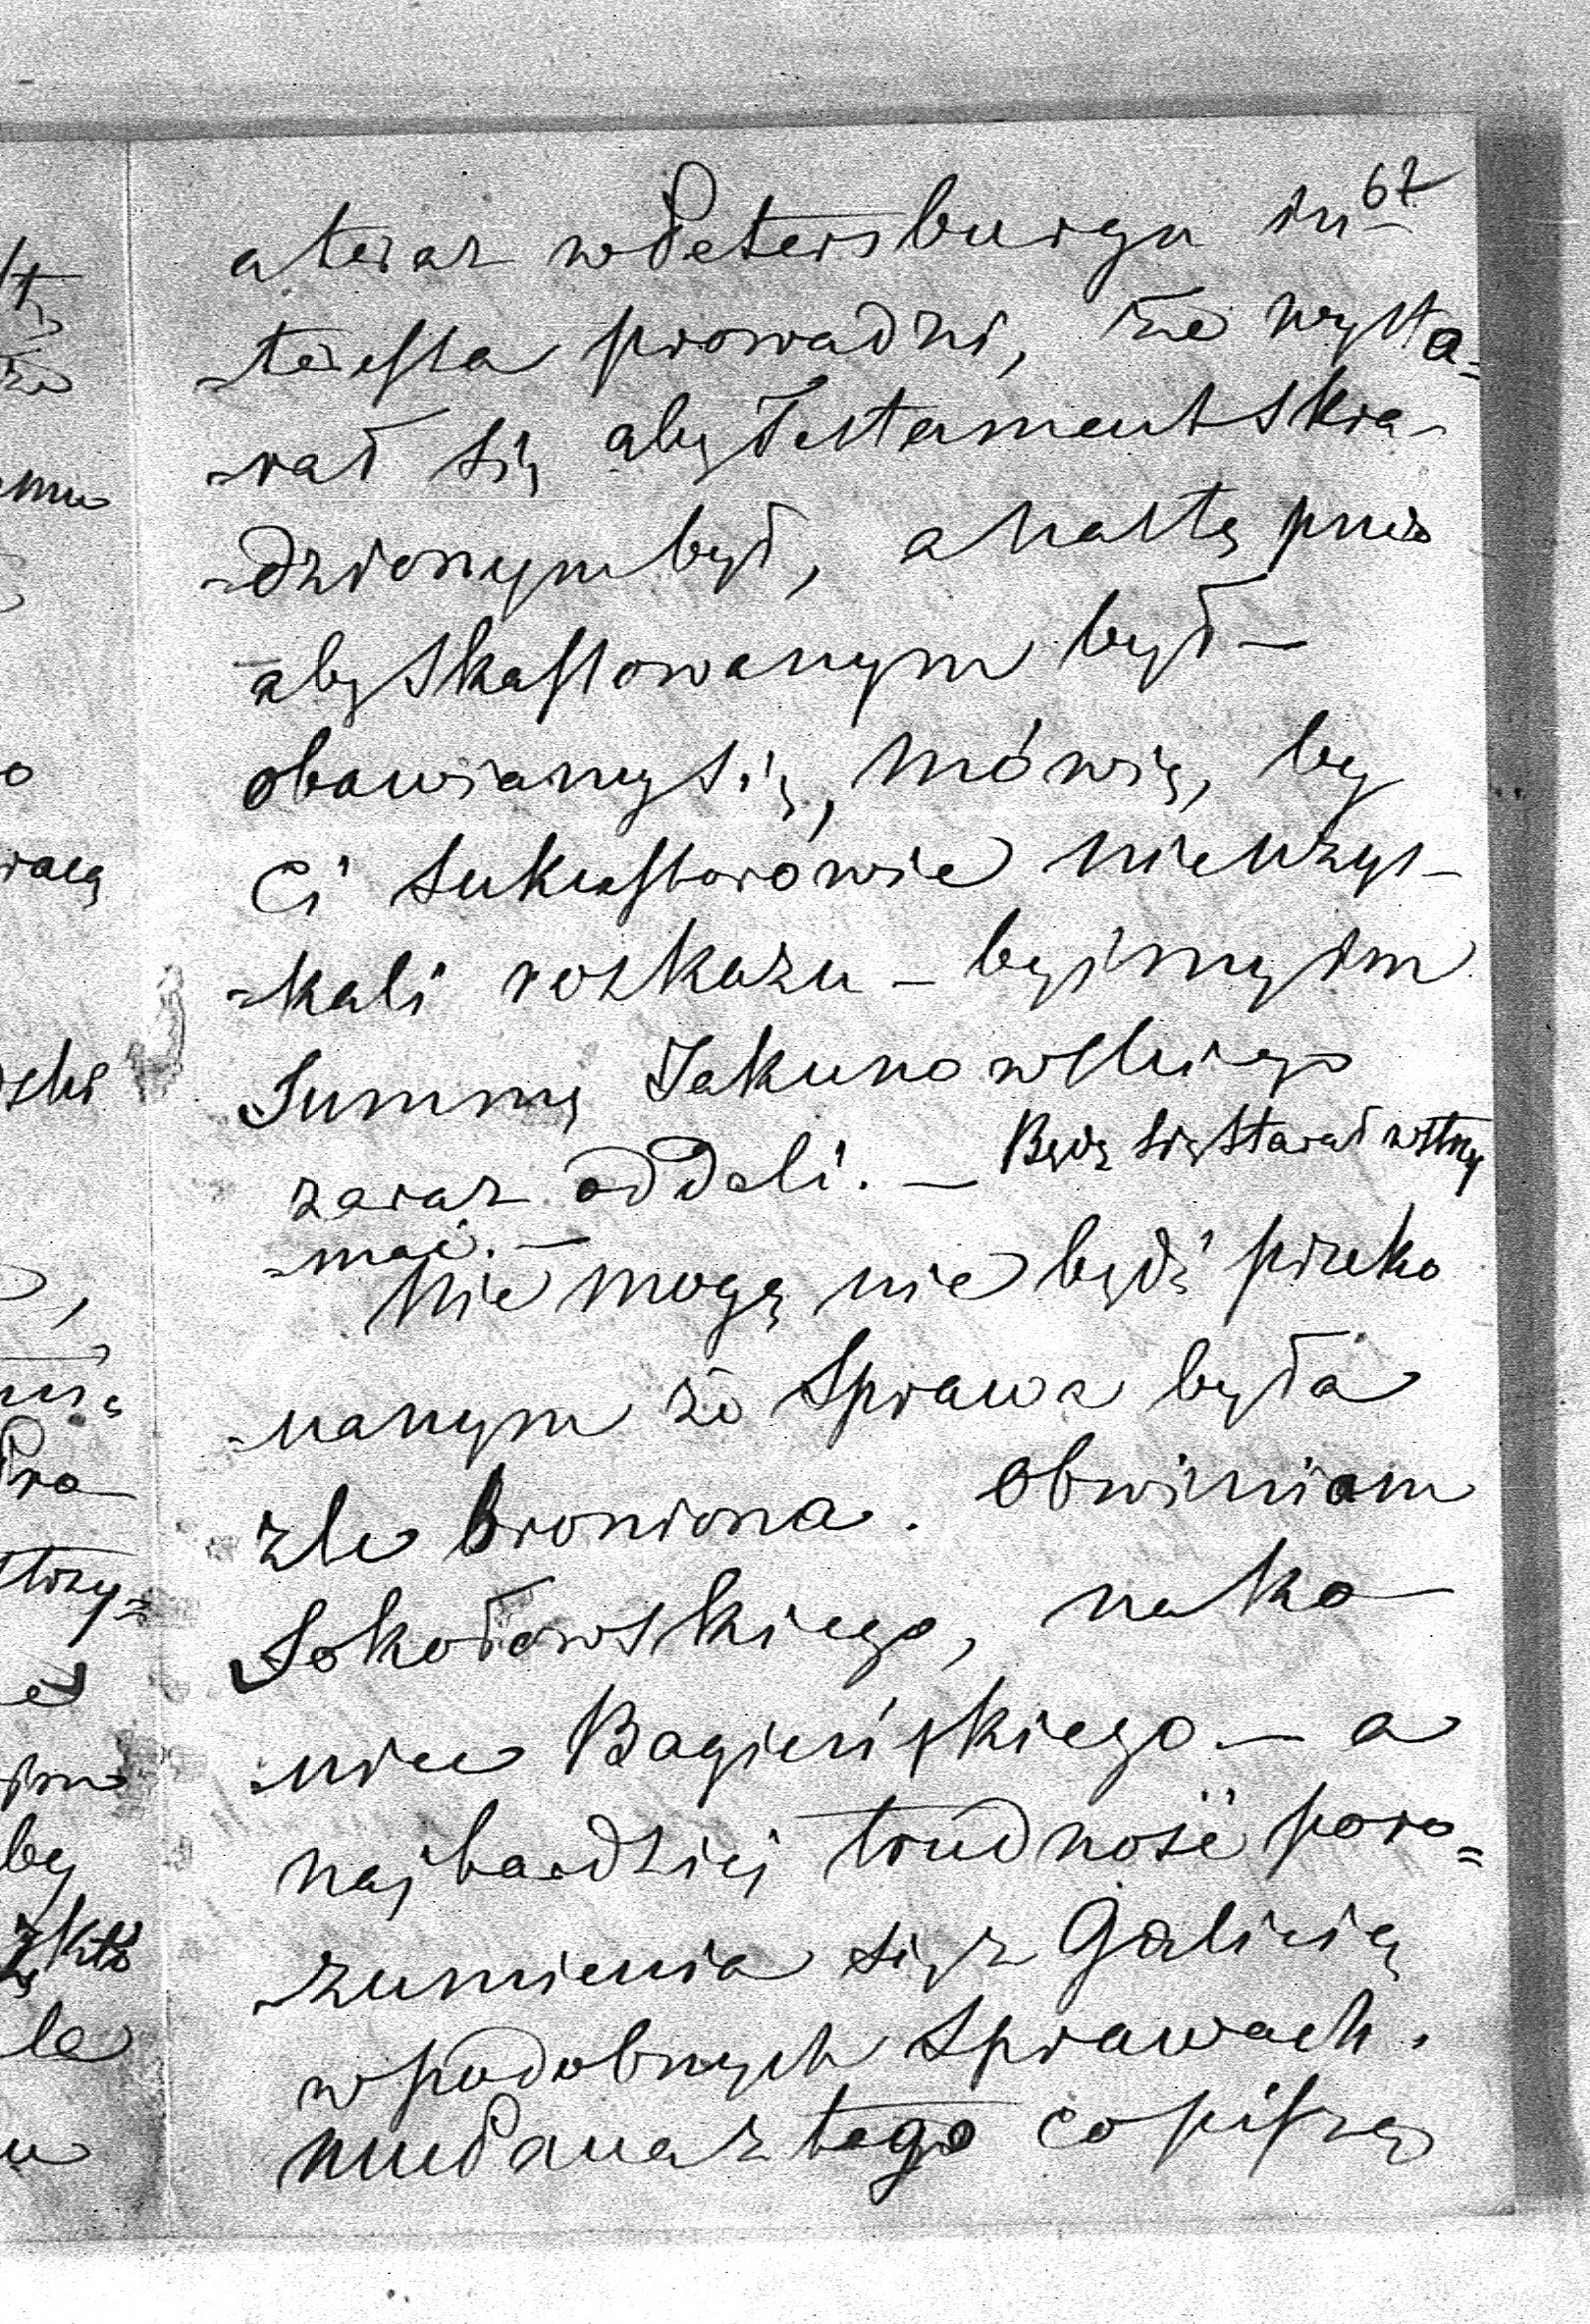 67
a teraz w Petersburgu in-
-teressa prowadzi, że wysta=
-rał się aby Testament skra-
-dzionym był, a następnie
aby skassowanym był —
obawiamy się, mówię, by
Ci sukcessorowie nieuzys-
-kali rozkazu — byśmy im
Summę Jakunowskiego
zaraz oddali. — Będę się starał wstrzy
-mać. —
Nie mogę nie bydź przeko
-nanym że Sprawa była
zle broniona. Obwiniam
Sokołowskiego, nako
-niec Bagieńskiego — a
najbardziej trudność poro=
-zumienia się z Galicią
w podobnych Sprawach.
co piszę